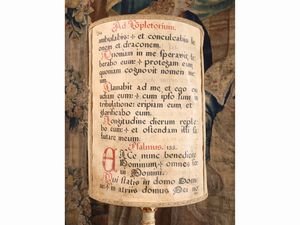 Ad Completorium.
ambulabis: et conculcabis le
onem et draconem.
Quoniam in me speravit, li
berabo eum: protegam eum,
quoniam cognovit nomen me
um.
Clamabit ad me et ego ex
audiam eum: cum ipso sum in
tribulatione: eripiam eum, et
glorificabo eum.
Longitudine dierum reple
bo eum: et ostendam illi sa
lutare meum.
Psalmus. 133.
ECce nunc benedicite
Dominum, omnes ser
vi Domini.
Qui statis in domo Domi
ni: in atriis domus Dei no